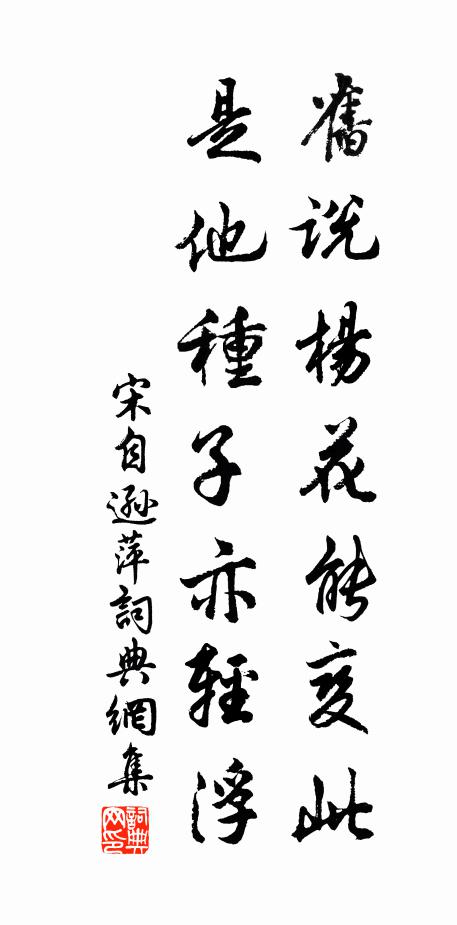 舊說楊花能變此
是他種子亦輕浮
宋自遜萍詞典網集
詞典網印